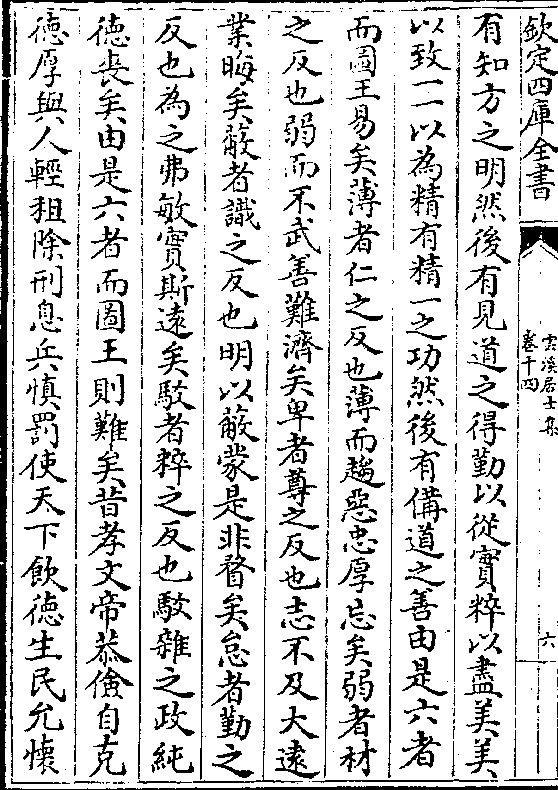 欽定四庫全書
雲溪居士集
卷十四
六
有知方之明然後有見道之得勤以從實粹以盡美美
以致一一以為精有精一之功然後有備道之善由是六者
而圖王易矣薄者仁之反也薄而趨惡忠厚忘矣弱者材
之反也弱而不武善難濟矣卑者尊之反也志不及大遠
業晦矣蔽者識之反也明以蔽蒙是非瞀矣怠者勤之
反也為之弗敏實斯遠矣駁者粹之反也駁雜之政純
德喪矣由是六者而圖王則難矣昔孝文帝恭儉自克
德厚與人輕租除刑息兵慎罰使天下飲德生民允懷